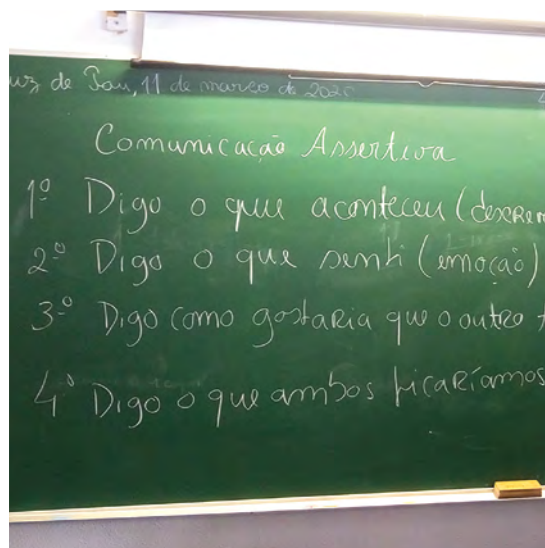 uz de Pau, 11 de março de 202
Comunicação Assertiva
1º Digo o que aconteceu (descrev
2º Digo o que senti (emoção)
3º Digo como gostaria que o outro
4º Digo o que ambos ficaríamos